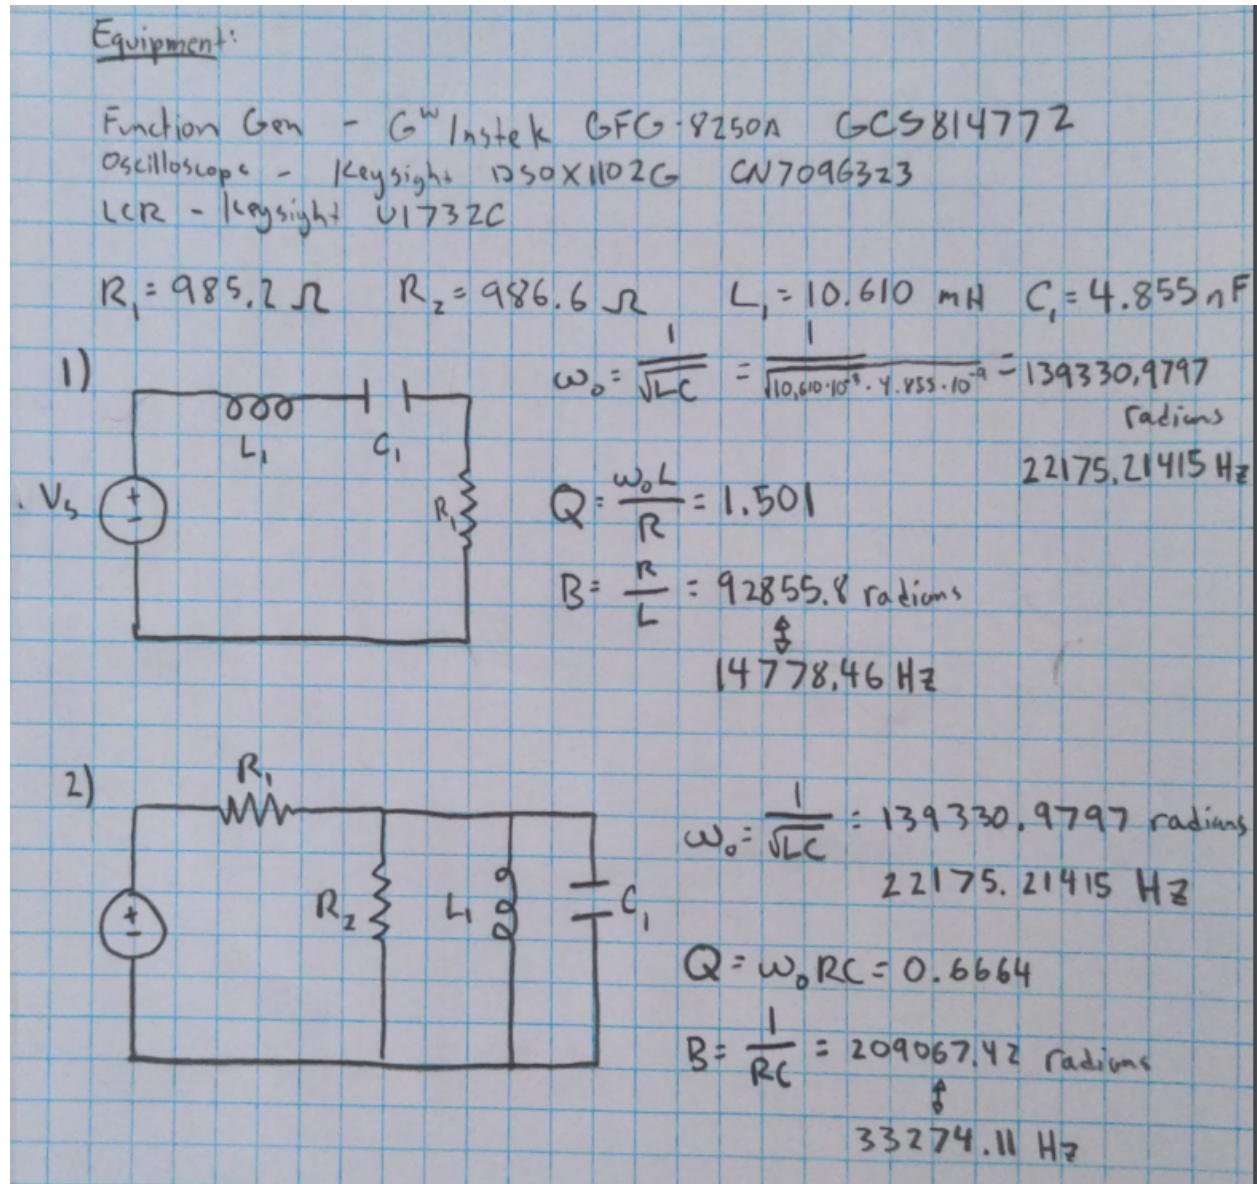 Equipment:
Function Gen - GW Instek GFG-8250A GCS814772
Oscilloscope - Keysight DSOX1102G CN7096323
LCR - Keysight U1732C
R₁ = 985.2 Ω R₂ = 986.6 Ω L₁ = 10.610 mH C₁ = 4.855 nF
1)
ω₀ = 1/√LC = 1/√10.610·10⁻³ · 4.855·10⁻⁹ = 139330.9797 radians
22175.21415 Hz
L₁ C₁
Vs + - R₁
Q = ω₀L/R = 1.501
B = R/L = 92855.8 radians
↕
14778.46 Hz
2)
R₁
ω₀ = 1/√LC = 139330.9797 radians
22175.21415 Hz
+ - R₂ L₁ C₁
Q = ω₀RC = 0.6664
B = 1/RC = 209067.42 radians
↕
33274.11 Hz